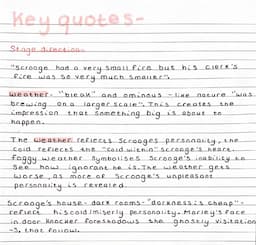 Key quotes-
Stage directions
"scrooge had a very small fire but his clerk's
fire was so very much smaller".
Weather- "bleak" and ominous - like nature "was
brewing on a larger scale". This creates the
impression that something big is about to
happen.
The weather reflects Scrooges personality, the
cold reflects the "cold within" scrooge's heart.
foggy weather symbolises Scrooge's inability to
see how ignorant he is. The weather gets
worse, as more of Scrooge's unpleasant
personality is revealed.
Scrooge's house- dark rooms- "darkness is cheap"-
reflect his cold/miserly personality. Marley's face
in door knocker foreshadows the ghostly visitation
-s, that follow.